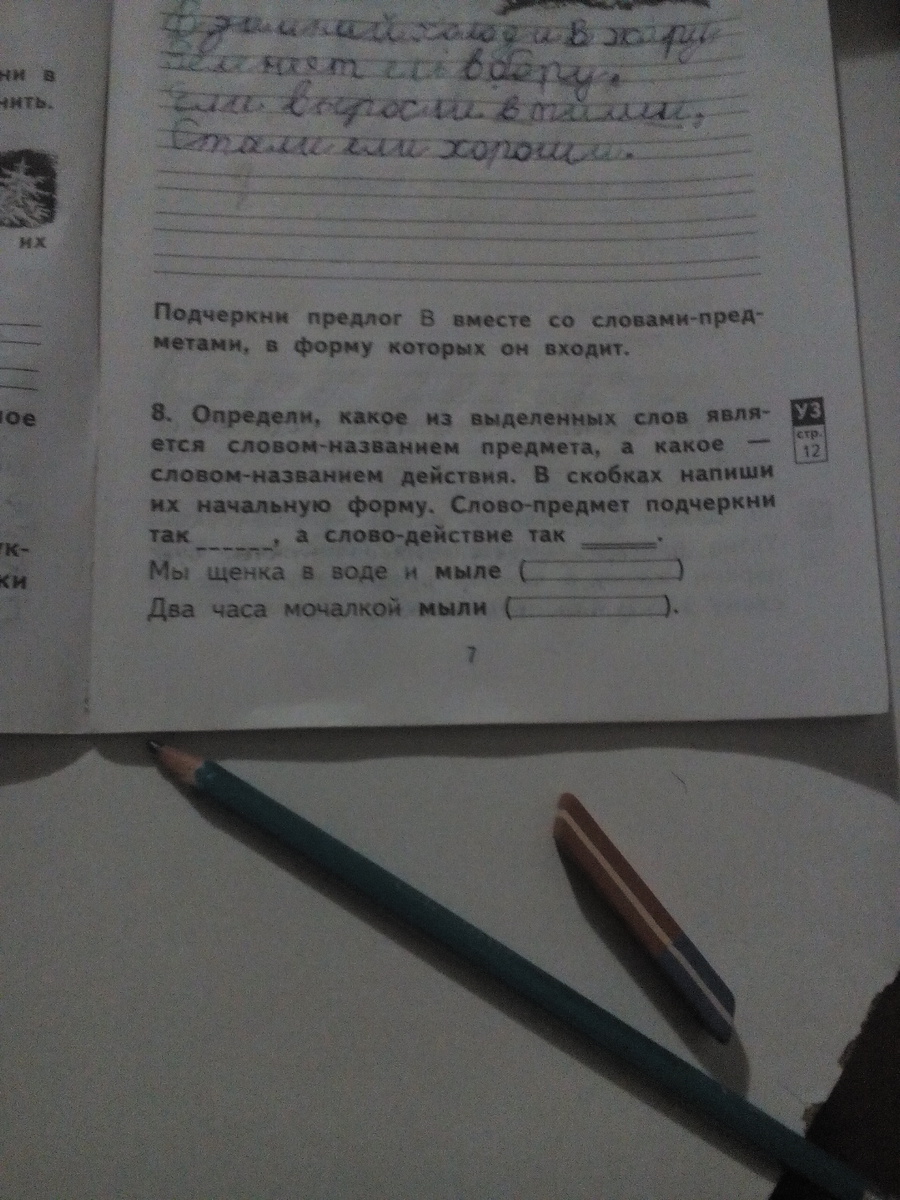 В зимний холод и в жару
Зеленеет ель в бору.
Ели выросли в тиши,
Стали ели хороши.
ни в
нить.
их
ное
ук-
ки
Подчеркни предлог В вместе со словами-пред-
метами, в форму которых он входит.
8. Определи, какое из выделенных слов явля-
ется словом-названием предмета, а какое —
словом-названием действия. В скобках напиши
их начальную форму. Слово-предмет подчеркни
так ______, а слово-действие так ______.
Мы щенка в воде и мыле (          )
Два часа мочалкой мыли (          ).
УЗ
стр.
12
7